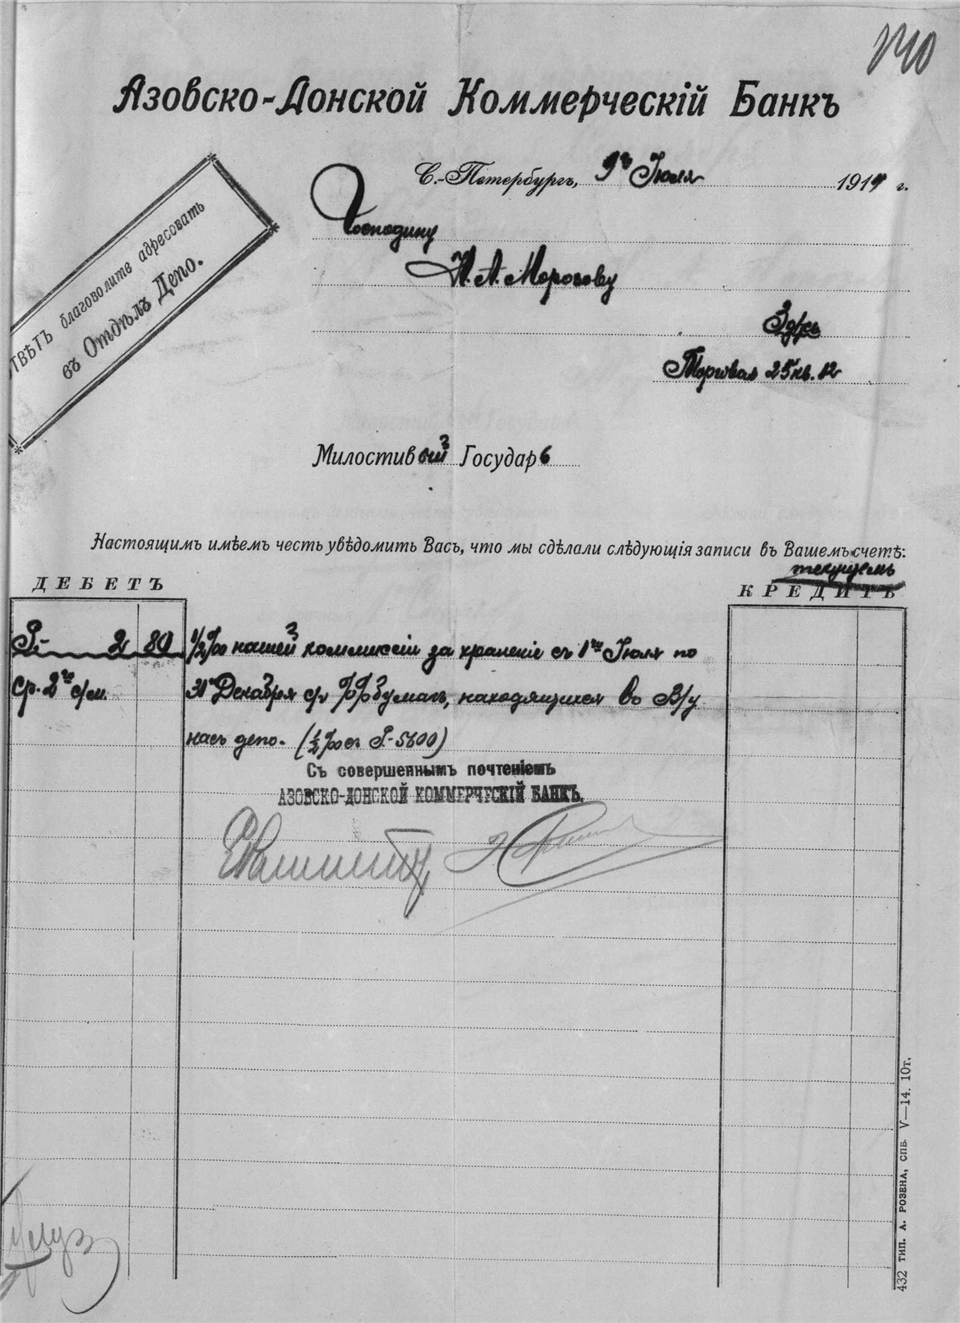 140
Азовско-Донской Коммерческій Банкъ
С.-Петербургъ, 9го Іюля 1914 г.
ОТВѢТЪ благоволите адресовать
въ Отдѣлъ Депо.
Господину
Н. А. Морозову
Здѣсь
Торговая 25 кв. 12
Милостивый Государь
Настоящимъ имѣемъ честь увѣдомить Васъ, что мы сдѣлали слѣдующія записи въ Вашемъ счетѣ:
текущемъ
ДЕБЕТЪ
КРЕДИТЪ
Р- 2 80 ½‰ нашей коммиссіи за храненіе съ 1го Іюля по
ср. 2го с/м. 31 Декабря с/г %% бумагъ, находящихся во В/у
насъ депо. (½‰ съ Р-5600)
Съ совершеннымъ почтеніемъ
АЗОВСКО-ДОНСКОЙ КОММЕРЧЕСКІЙ БАНКЪ.
432 ТИП. А. РОЗЕНА, СПБ. V—14. 10т.